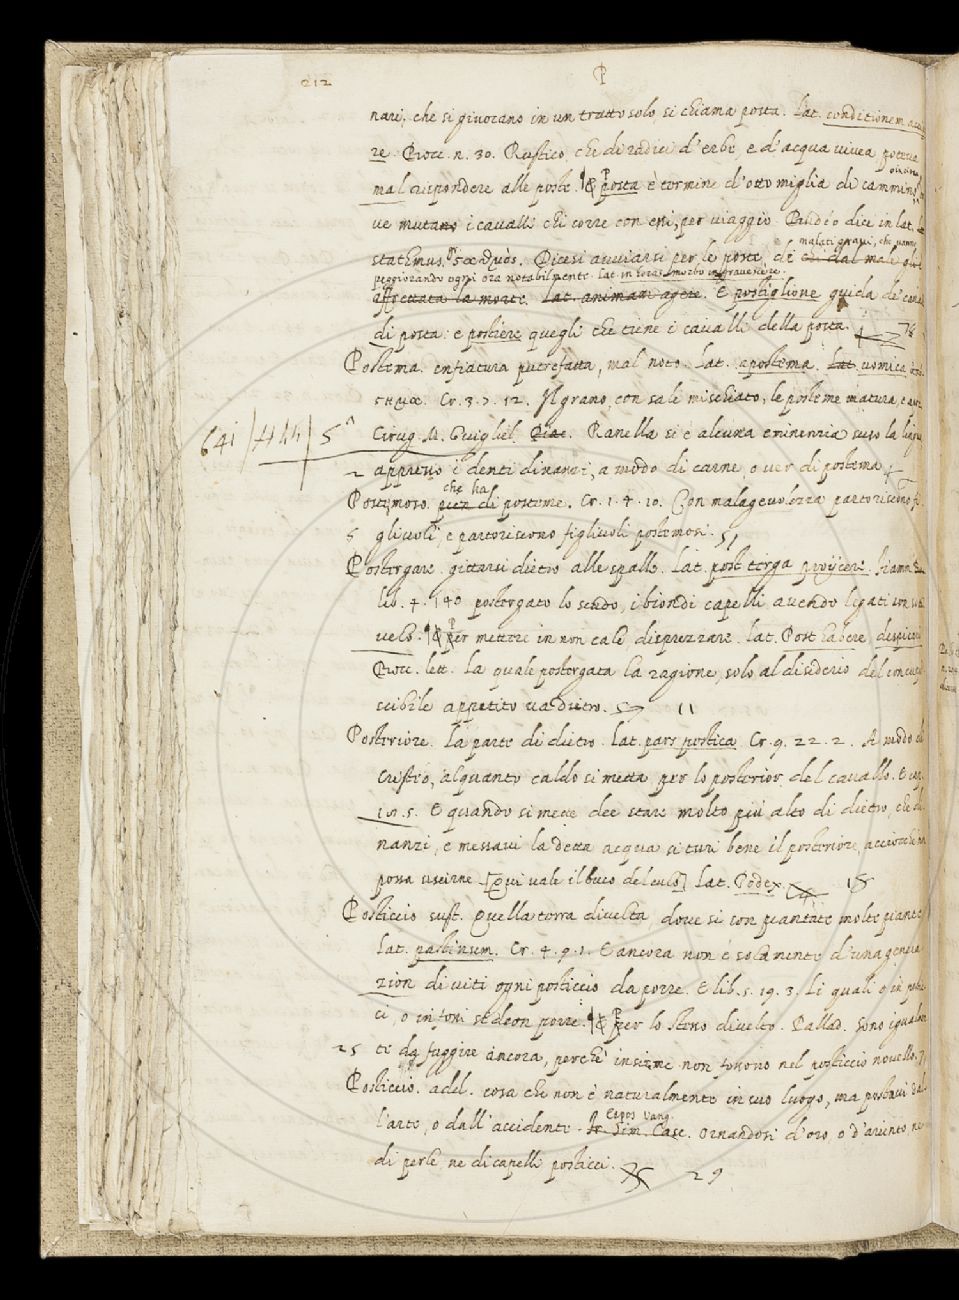 212
P
nari, che si giuocano in un tratto solo si chiama posta. Lat. conditionem
re. Bocc. n. 30. Rustico, che di radici d'erbe, e d'acqua vivea, poteva
mal rispondere alle poste. § posta è termine d'otto miglia di cammino
ve mutano i cavalli chi corre con essi, per viaggio. Lat.
malati gravi, che vanno
statħmus. Dicesi avviarsi per le poste, di ch dal male gli è
peggiorando ogni ora notabilmente. Lat. in horas morbo ingravescere.
affrettata la morte. Lat. animam agere. E postiglione guida de' cava
di posta: e postiere quegli che tiene i cavalli della posta.
Postema. enfiatura putrefatta, mal noto. Lat. apostema. Lat. vomica
Cr. 3. 7. 12. Il grano, con sale mischiato, le posteme matura, e
641 / 444 / 5 Cirug. M. Guigliel. Ranella si è alcuna eminenzia suso la lingua
2 appresso i denti dinanzi, a modo di carne, o ver di postema
che ha
Postemoso. pien di posteme. Cr. 1. 4. 10. Con malagevolezza partoriscono fi
5 gliuoli, e partoriscono figliuoli postemosi. 51
Postergare. gittarsi dietro alle spalle. Lat. post terga proijcere. Fiamm.
lib. 4. 140 postergato lo scudo, i biondi capelli avendo legati con
velo. § per mettere in non cale, disprezzare. Lat. Post habere, despicere
Bocc. lett. La quale postergata la ragione, solo al disiderio del concupi
scibile appetito va dietro. 11
Posteriore. La parte di dietro. Lat. pars postica. Cr. 9. 22. 2. A modo di
cristeo, alquanto caldo si metta per lo posterior del cavallo. E
101. 5. E quando si mette dee stare molto più alto di dietro, che di
nanzi, e messavi la detta acqua si turi bene il posteriore, acciocchè non
possa uscirne. [Qui vale il buco del culo] Lat. Podex. 18
Posticcio sust. Quella terra divelta dove si son piantate molte piante
Lat. pastinum. Cr. 4. 9. 1. E ancora non è solamente d'una genera
zion di viti ogni posticcio da porre. E lib. 5. 19. 3. Li quali o in postic
ci, o in fossi si deon porre. § per lo stesso divelto. Pallad. Sono igualmen
25 te da fuggire ancora, perchè insieme non fossono nel posticcio novello.
Posticcio. add. cosa che non è naturalmente in suo luogo, ma postavi dal
Espos. Vang.
l'arte, o dall'accidente. Fr. Sim. Casc. Ornandosi d'oro, o d'ariento, ne
di perle, ne di capelli posticci. 29